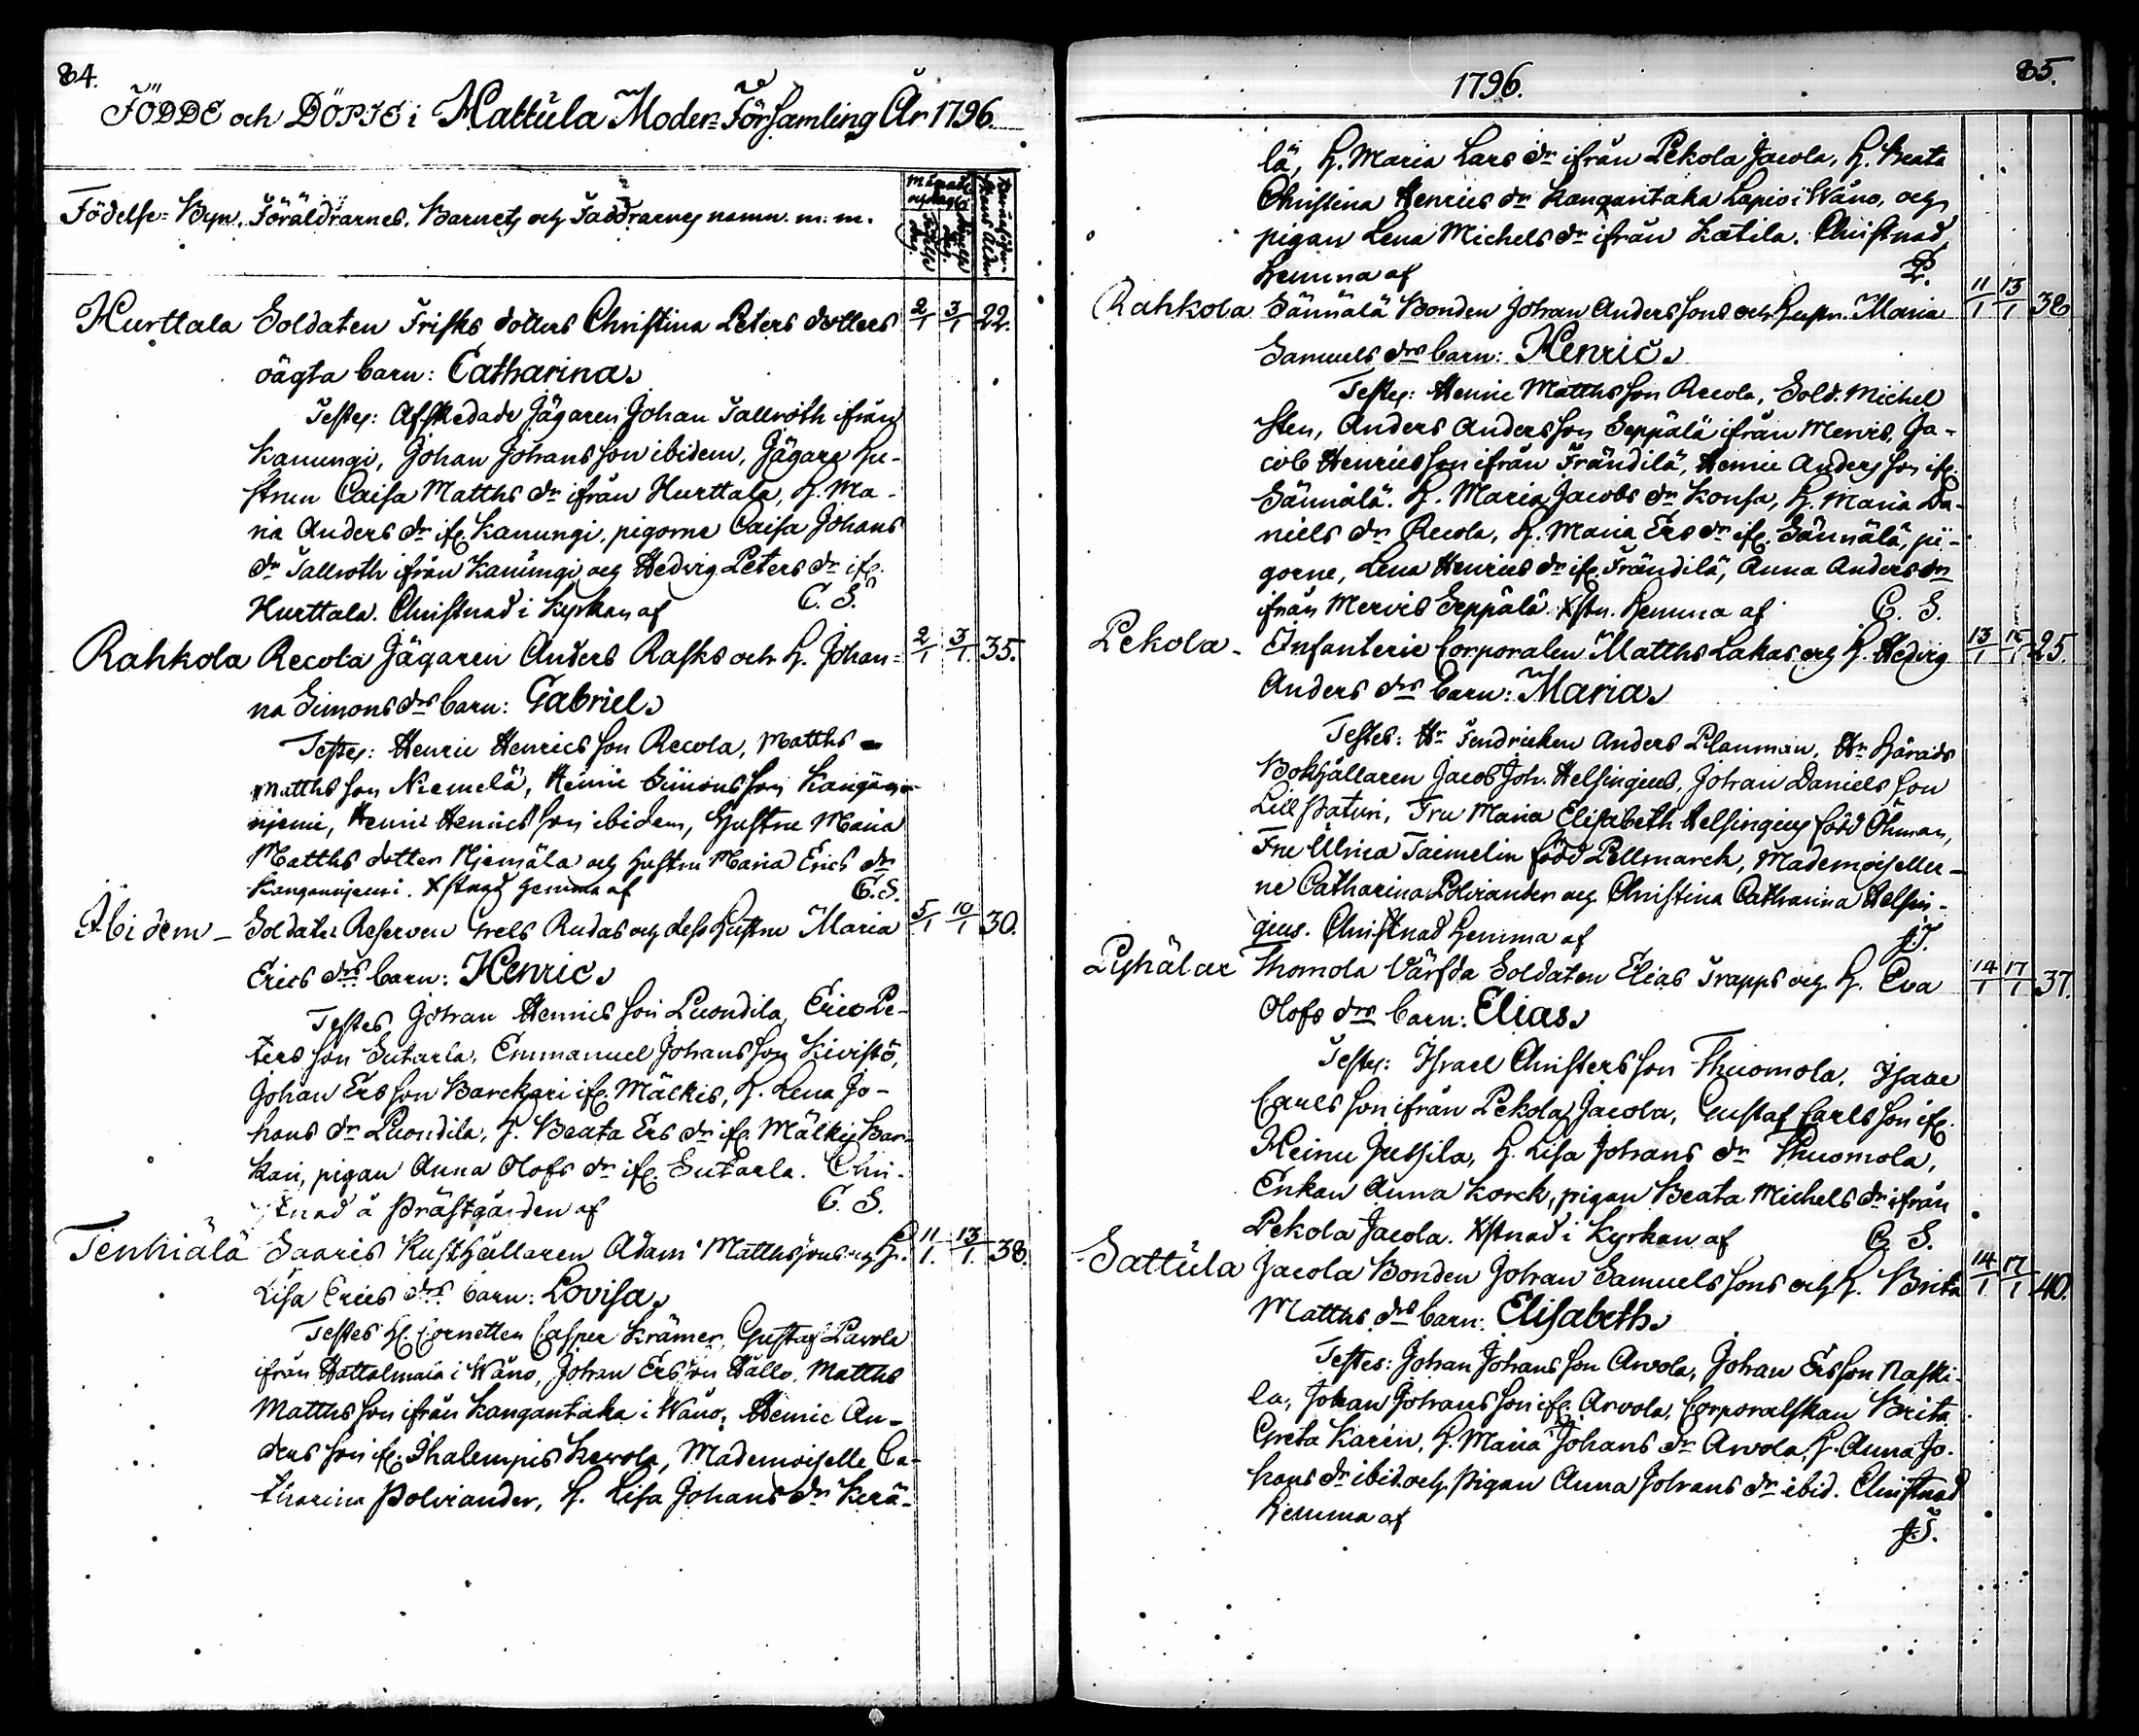 84.
FÖDDE och DÖPTE i Hattula Moder=Församling År 1796.
Födelse=Byn. Föräldrarnes. Barnets och Faddrarnes namn. m: m.
Hurttala Soldaten Frisks dotters Christina Peters dotters 2/1 3/1 22.
oägta barn: Catharina
Testes: Afskedade Jägaren Johan Tallroth ifrån
Kanungi, Johan Johansson ibidem, Jägare Hu-
strun Caisa Matths dr ifrån Hurttala, H. Ma-
ria Anders dr ifr. Kanungi, pigorne Caisa Johans
dr Tallroth ifrån Kanungi och Hedvig Peters dr ifr.
Hurttala. Christnad i Kyrkan af C. S.
Rahkola Recola Jägaren Anders Rasks och H. Johan= 2/1 3/1 35.
na Simons drs barn: Gabriel
Testes: Henric Henricsson Recola, Matths
Matthsson Niemelä, Henric Simonsson
niemi, Henric Henricsson ibidem, Hustru Maria
Matths dotter och Hustru Maria Erics dr
Xstnad hemma af C. S.
Ibidem – Soldate Reserven Grels Rudas och dess Hustru Maria 5/1 10/1 30.
Erics drs barn: Henric
Testes Johan Henricsson Puondila, Eric Pe-
tersson Sutarla, Emmanuel Johansson Kivistö,
Johan Ersson Barckari ifr. Mälkis, H. Lena Jo-
hans dr Puondila, H. Beata Ers dr ifr. Mälkis Bar-
kari, pigan Anna Olofs dr ifr. Sutarla. Chri-
stnad å Prästgården af C. S.
Tenhiälä Saaris Rusthållaren Adam Matthssons och H. 11/1. 13/1. 38.
Lisa Erics drs barn: Lovisa
Testes H. Cornetten Casper Krämer, Gustaf Pavola
ifrån Hattelmala i Wåno, Johan Ersson Hällo, Matths
Matthsson ifrån Kangantaka i Wåno, Henric An-
dersson ifr. Ihalempis Kerola, Mademoiselle Ca-
tharina Polviander, H. Lisa Johans dr Kerä-
1796. 85.
lä, H. Maria Lars dr ifrån Pekola Jacola, H. Beata
Christina Henrics dr Kangantaka Lapio i Wåno, och
pigan Lena Michels dr ifrån Katila. Christnad
hemma af P.
Rahkola Sännälä Bonden Johan Anderssons och Hustr. Maria 11/1 13/1 38
Samuels drs barn: Henric
Testes: Henric Matthsson Recola, Sold. Michel
Sten, Anders Andersson Seppälä ifrån Mervis, Ja-
cob Henricsson ifrån Frändilä, Henric Andersson ifr.
Sännälä. H. Maria Jacobs dr Konsa, H. Maria Da-
niels dr Recola, H. Maria Ers dr ifr. Sännälä, pi-
gorne, Lena Henrics dr ifr. Frändilä, Anna Anders dr
ifrån Mervis Seppälä. Xstn. hemma af C. S.
Pekola – Infanterie Corporalen Matths Lakas och H. Hedvig 13/1 15/1 25.
Anders drs barn: Maria
Testes: Hr Fendricken Anders Planman, Hr Härads
Bokhållaren Jacob Joh. Helsingius, Johan Danielsson
Lill Paturi, Fru Maria Elisabeth Helsingius född Öhman,
Fru Ulrica Taimelin född Pellmarck, Mademoiseller-
ne Catharina Polviander och Christina Catharina Helsin-
gius. Christnad hemma af J. T.
Pyhälax Thomola Värfda Soldaten Elias Trapps och H. Eva 14/1 17/1 37.
Olofs drs barn: Elias
Testes: Israel Christersson Thuomola, Isaac
Carlsson ifrån Pekola Jacola, Gustaf Carlsson ifr.
Heinu Jussila, H. Lisa Johans dr Thuomola,
Enkan Anna Korck, pigan Beata Michels dr ifrån
Pekola Jacola. Xstnad i Kyrkan af C. S.
Sattula Jacola Bonden Johan Samuelssons och H. Brita 14/1 17/1 40.
Matths drs barn: Elisabeth
Testes: Johan Johansson Arvola, Johan Ersson Raski-
la, Johan Johansson ifr. Arvola, Corporalskan Brita
Greta Karin, H. Maria Johans dr Arvola, H. Anna Jo-
hans dr ibid. och Pigan Anna Johans dr ibid. Christnad
hemma af J. T.